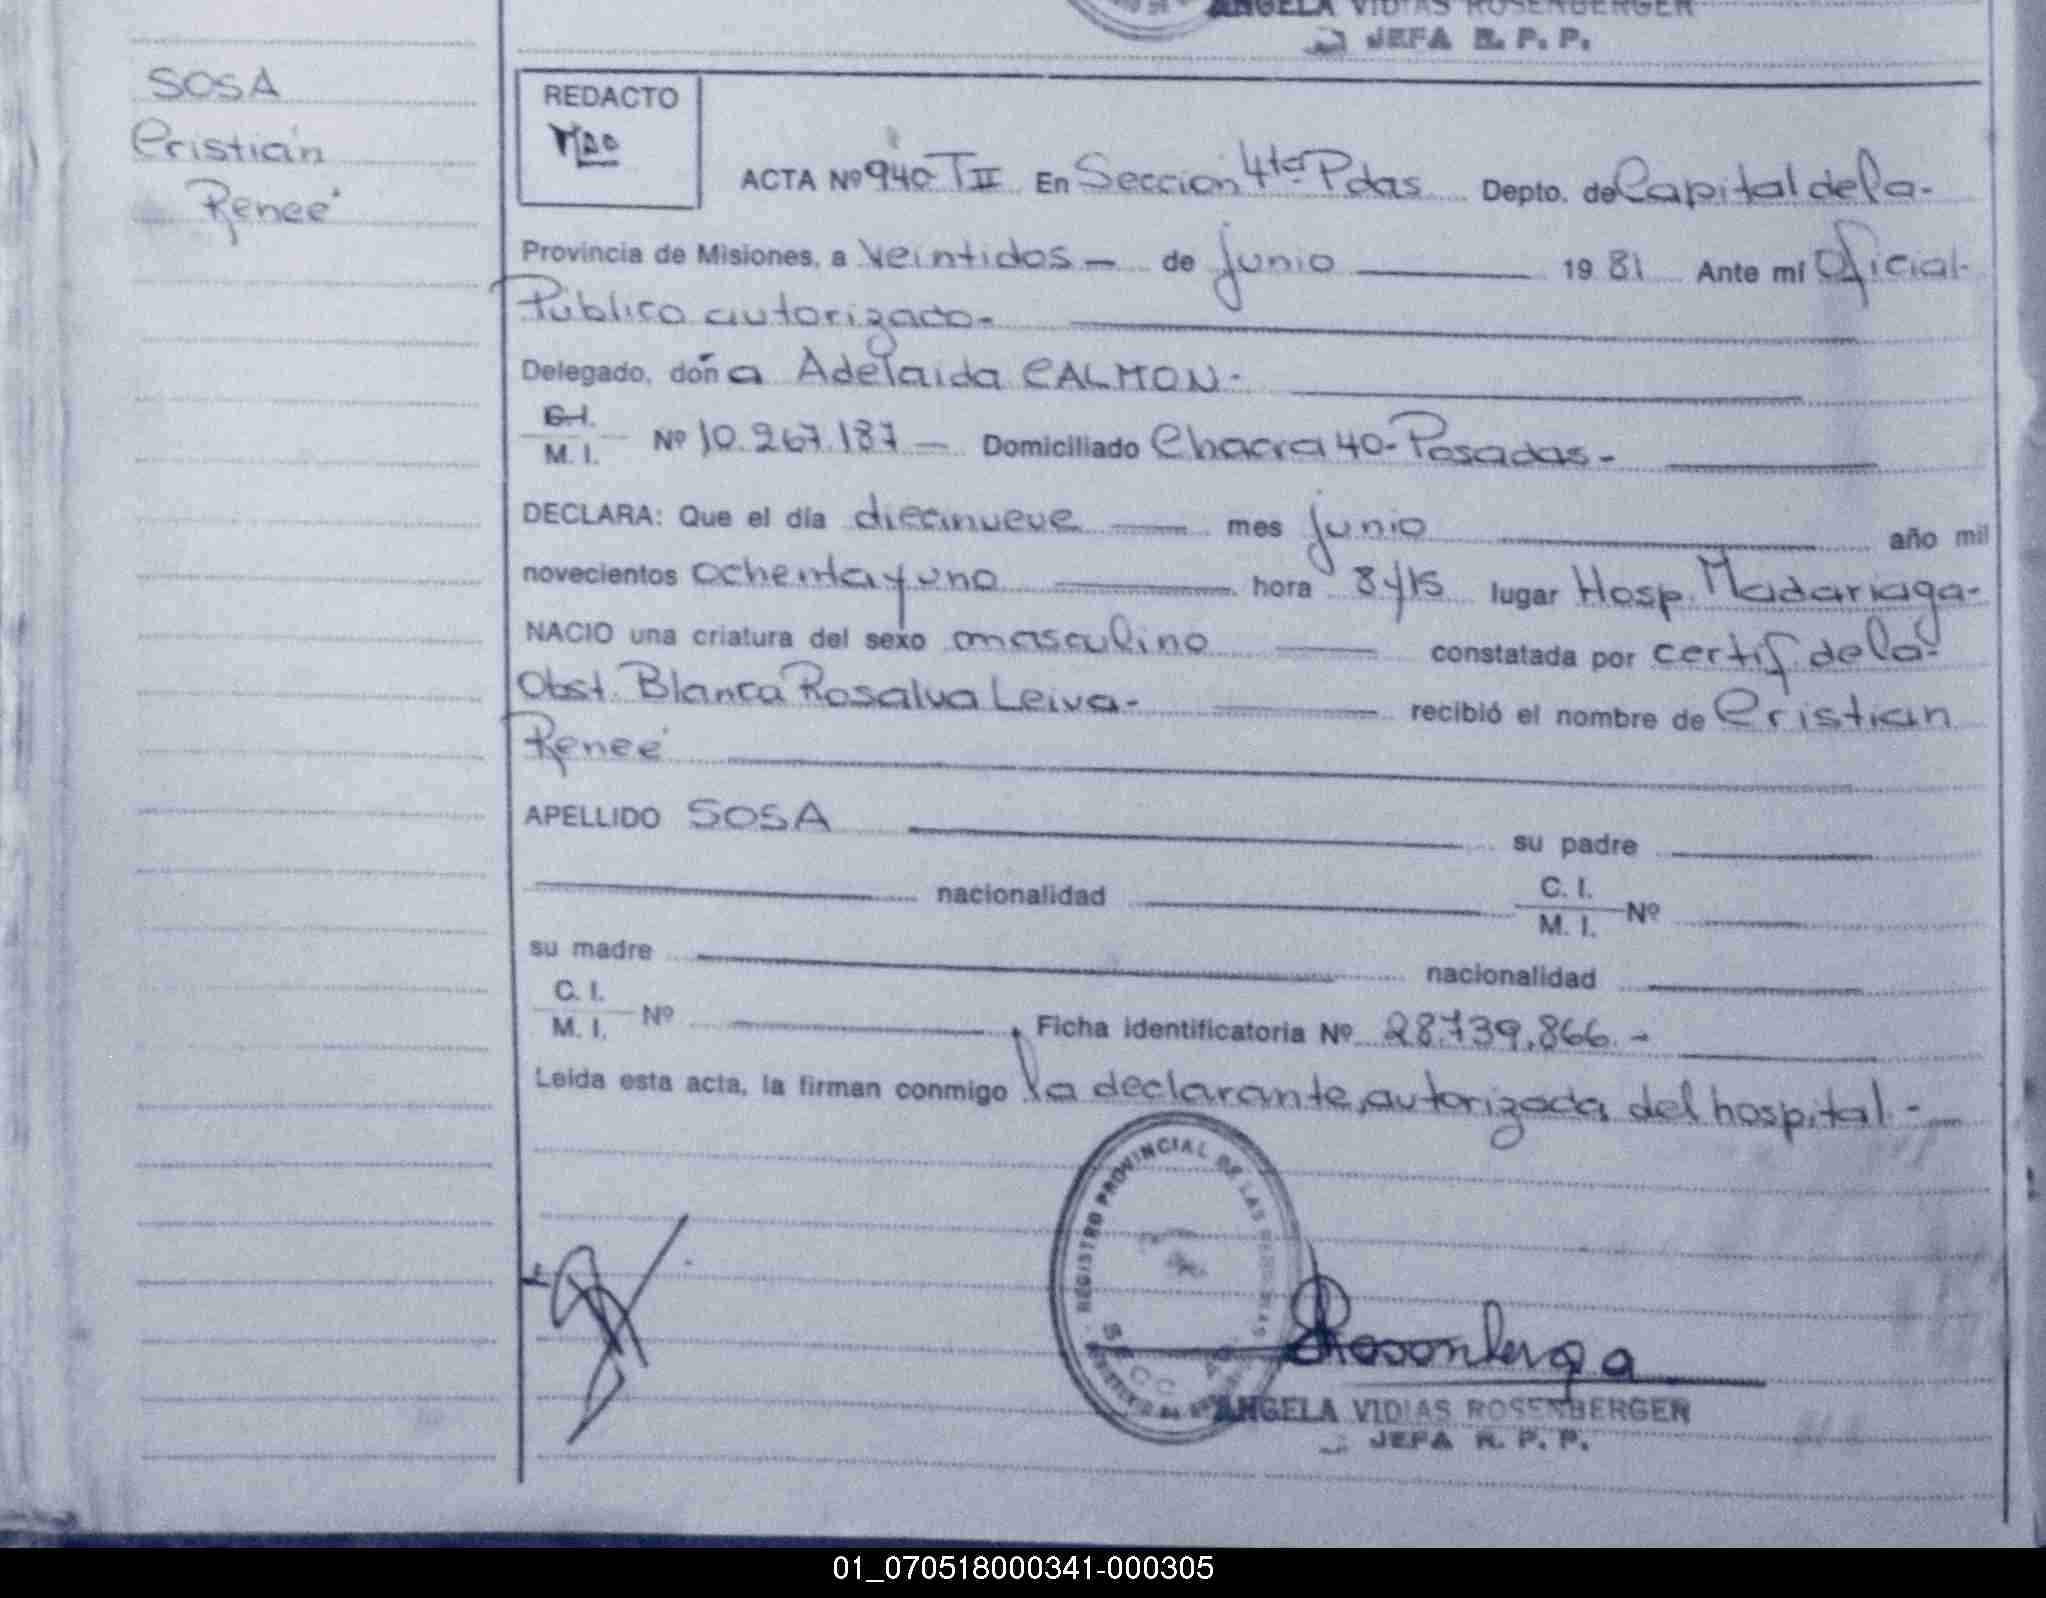 ANGELA VIDIAS ROSENBERGER
JEFA R. P. P.
SOSA
Cristián
Reneé
REDACTO
ACTA Nº 940 T II En Sección 4ta Pdas Depto. de Capital de la-
Provincia de Misiones, a veintidos — de junio 19 81 Ante mí Oficial-
Público autorizado-
Delegado, doña Adelaida CALMON-
C. I.
M. I. Nº 10.267.187 — Domiciliado Chacra 40-Posadas-
DECLARA: Que el día diecinueve mes junio año mil
novecientos ochenta y uno hora 8 y 15 lugar Hosp. Madariaga-
NACIO una criatura del sexo masculino constatada por certif. de la-
Obst. Blanca Rosalva Leiva- recibió el nombre de Cristian
Reneé
APELLIDO SOSA su padre
nacionalidad C. I.
M. I. Nº
su madre nacionalidad
C. I.
M. I. Nº , Ficha identificatoria Nº 28.739.866.-
Leida esta acta, la firman conmigo la declarante, autorizada del hospital.-
REGISTRO PROVINCIAL DE LAS PERSONAS
SECC
Rosenberga
ANGELA VIDIAS ROSENBERGER
JEFA R. P. P.
01_070518000341-000305